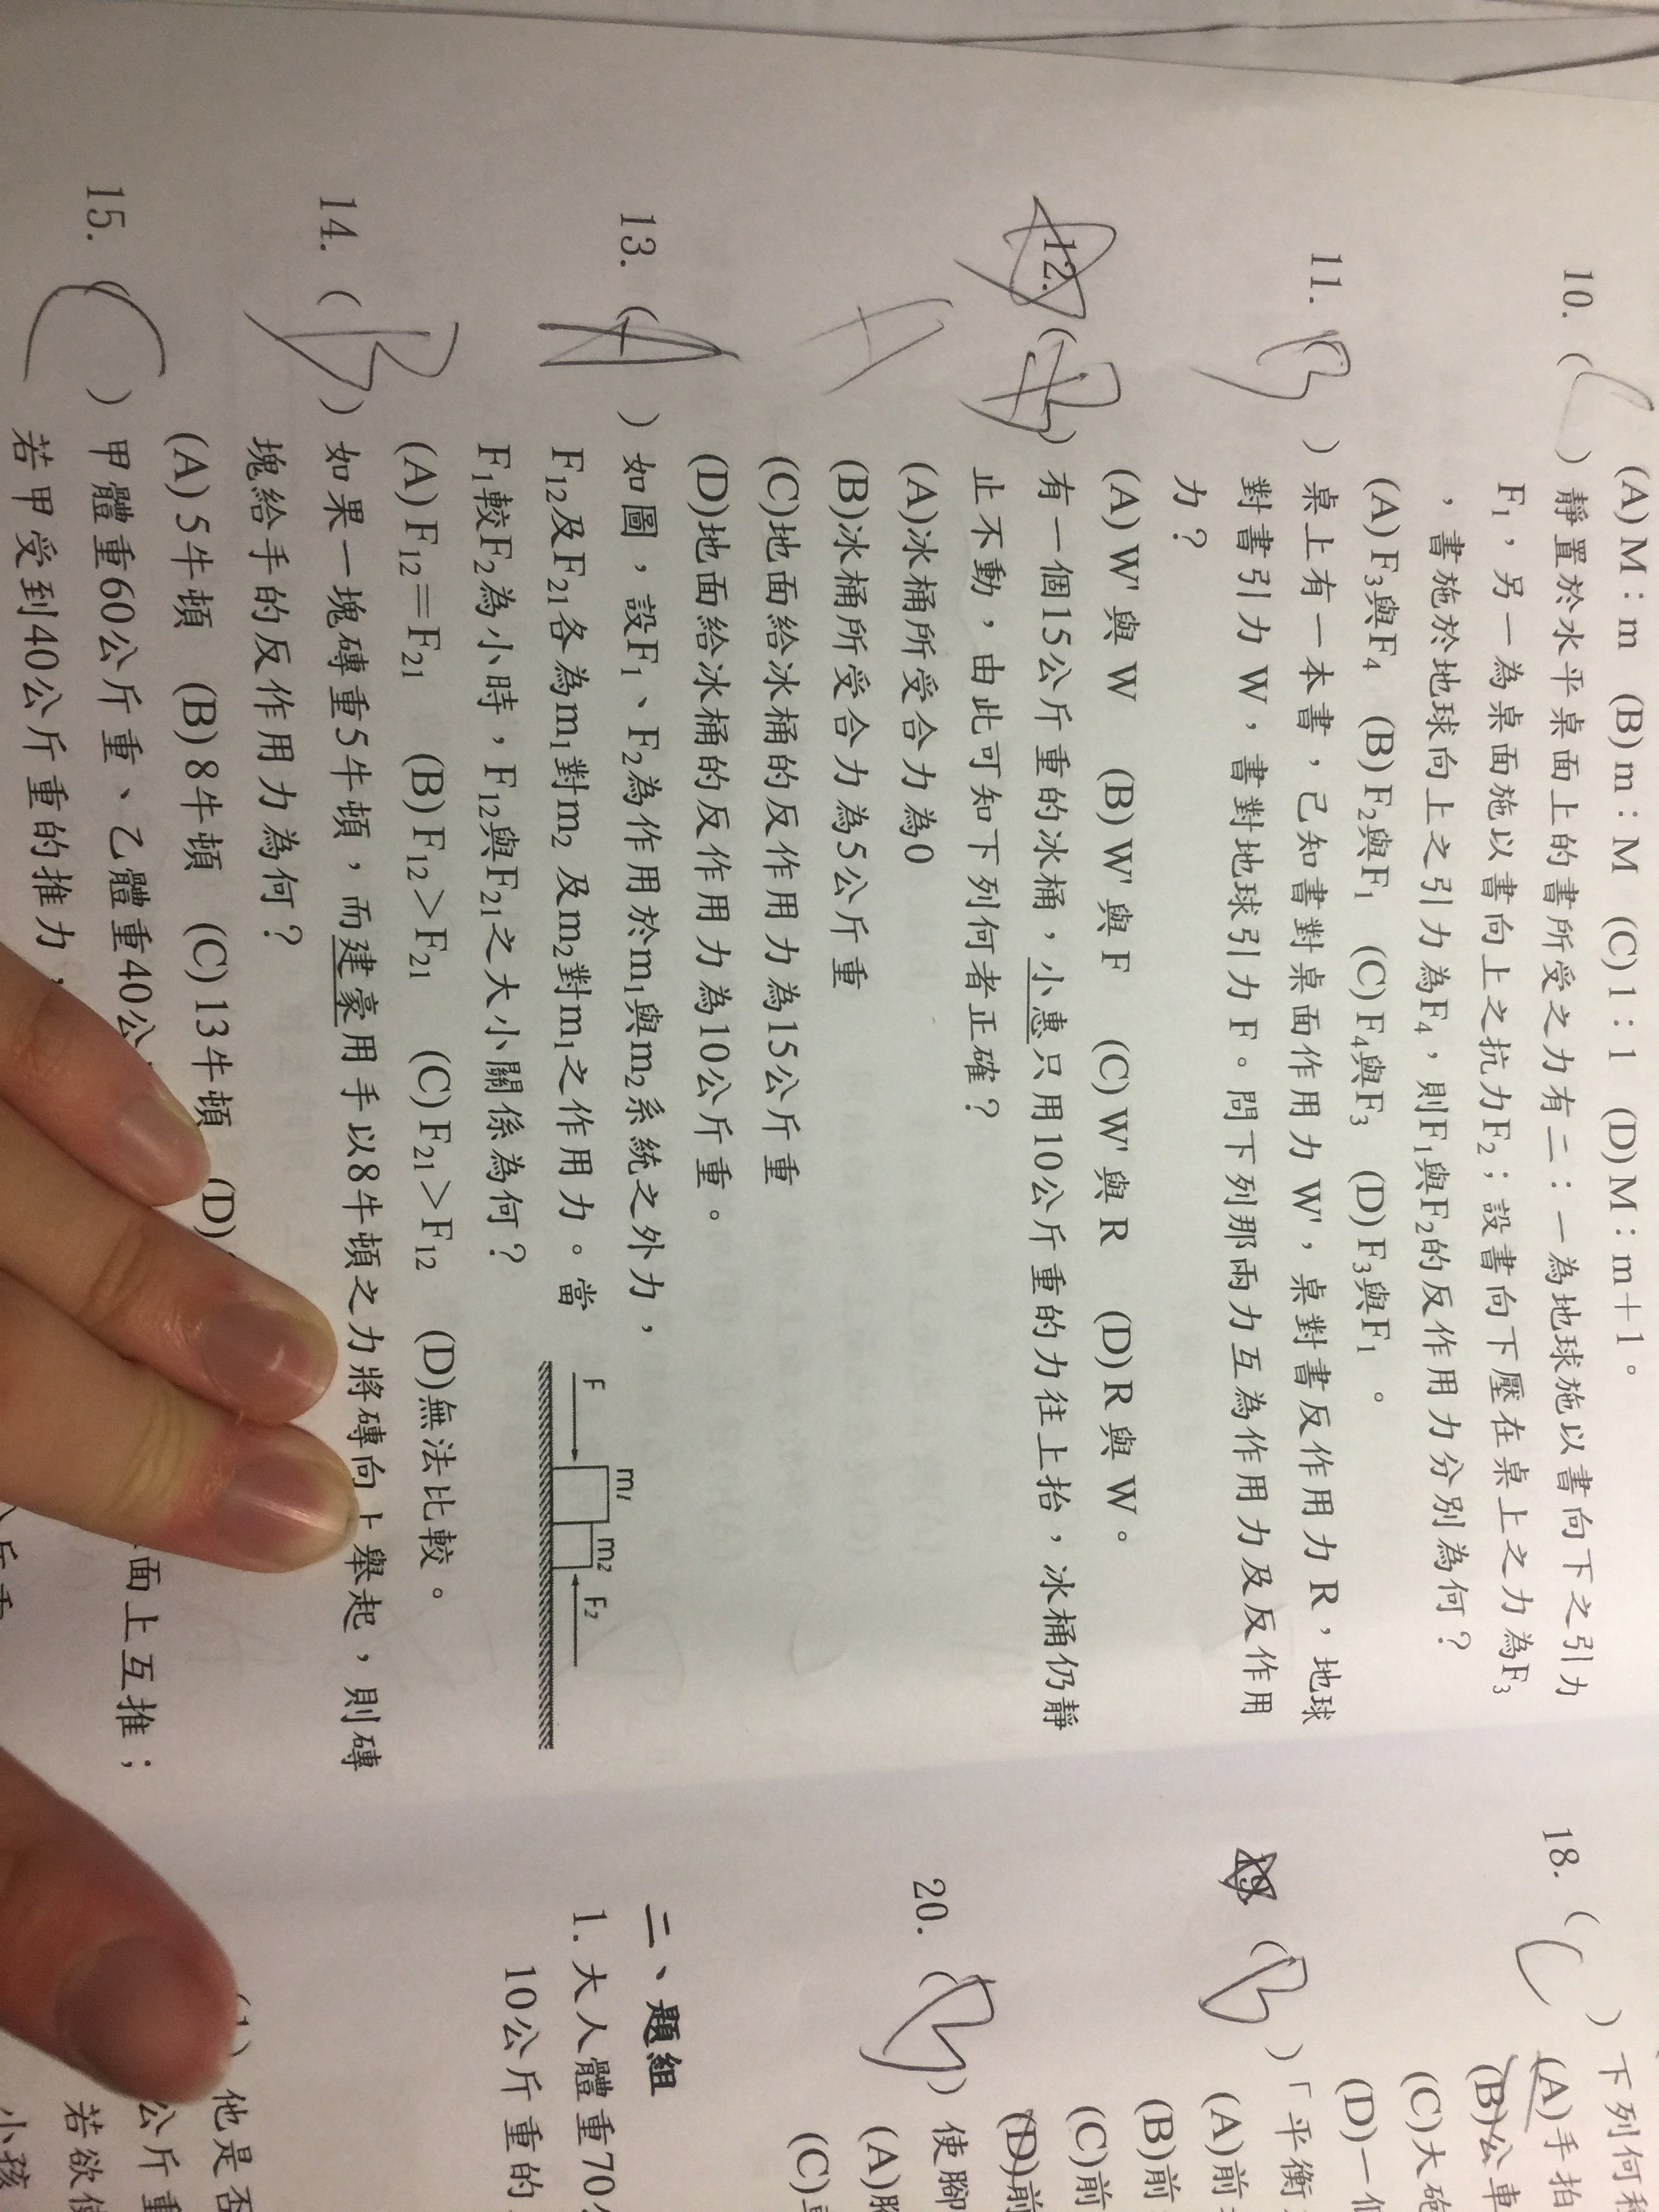 (A) M：m (B) m：M (C) 1：1 (D) M：m＋1。
10. ( C ) 靜置於水平桌面上的書所受之力有二：一為地球施以書向下之引力
F₁，另一為桌面施以書向上之抗力F₂；設書向下壓在桌上之力為F₃
，書施於地球向上之引力為F₄，則F₁與F₂的反作用力分別為何？
(A) F₃與F₄ (B) F₂與F₁ (C) F₄與F₃ (D) F₃與F₁ 。
11. ( B ) 桌上有一本書，已知書對桌面作用力 W'，桌對書反作用力 R，地球
對書引力 W，書對地球引力 F。問下列那兩力互為作用力及反作用
力？
(A) W' 與 W (B) W' 與 F (C) W' 與 R (D) R 與 W。
12. ( ) 有一個15公斤重的冰桶，小惠只用10公斤重的力往上抬，冰桶仍靜
止不動，由此可知下列何者正確？
A
(A)冰桶所受合力為0
(B)冰桶所受合力為5公斤重
(C)地面給冰桶的反作用力為15公斤重
(D)地面給冰桶的反作用力為10公斤重。
13. ( A ) 如圖，設F₁、F₂為作用於m₁與m₂系統之外力，
F₁₂及F₂₁各為m₁對m₂ 及m₂對m₁之作用力。當
F₁較F₂為小時，F₁₂與F₂₁之大小關係為何？
(A) F₁₂＝F₂₁ (B) F₁₂＞F₂₁ (C) F₂₁＞F₁₂ (D)無法比較。
F m₁ m₂ F₂
14. ( B ) 如果一塊磚重5牛頓，而建豪用手以8牛頓之力將磚向上舉起，則磚
塊給手的反作用力為何？
(A) 5牛頓 (B) 8牛頓 (C) 13牛頓 (D)
15. ( C ) 甲體重60公斤重、乙體重40公 面上互推；
若甲受到40公斤重的推力，
18. ( C ) 下列何種
(A)手拍
(B)公車
(C)大砲
(D)一個
19. ( B ) 「平衡
(A)前
(B)前
(C)前
(D)前
20. ( B ) 使腳
(A)腳
(C)
二、題組
1. 大人體重70
10公斤重的
(1) 他是否
公斤重
若欲使
小孩